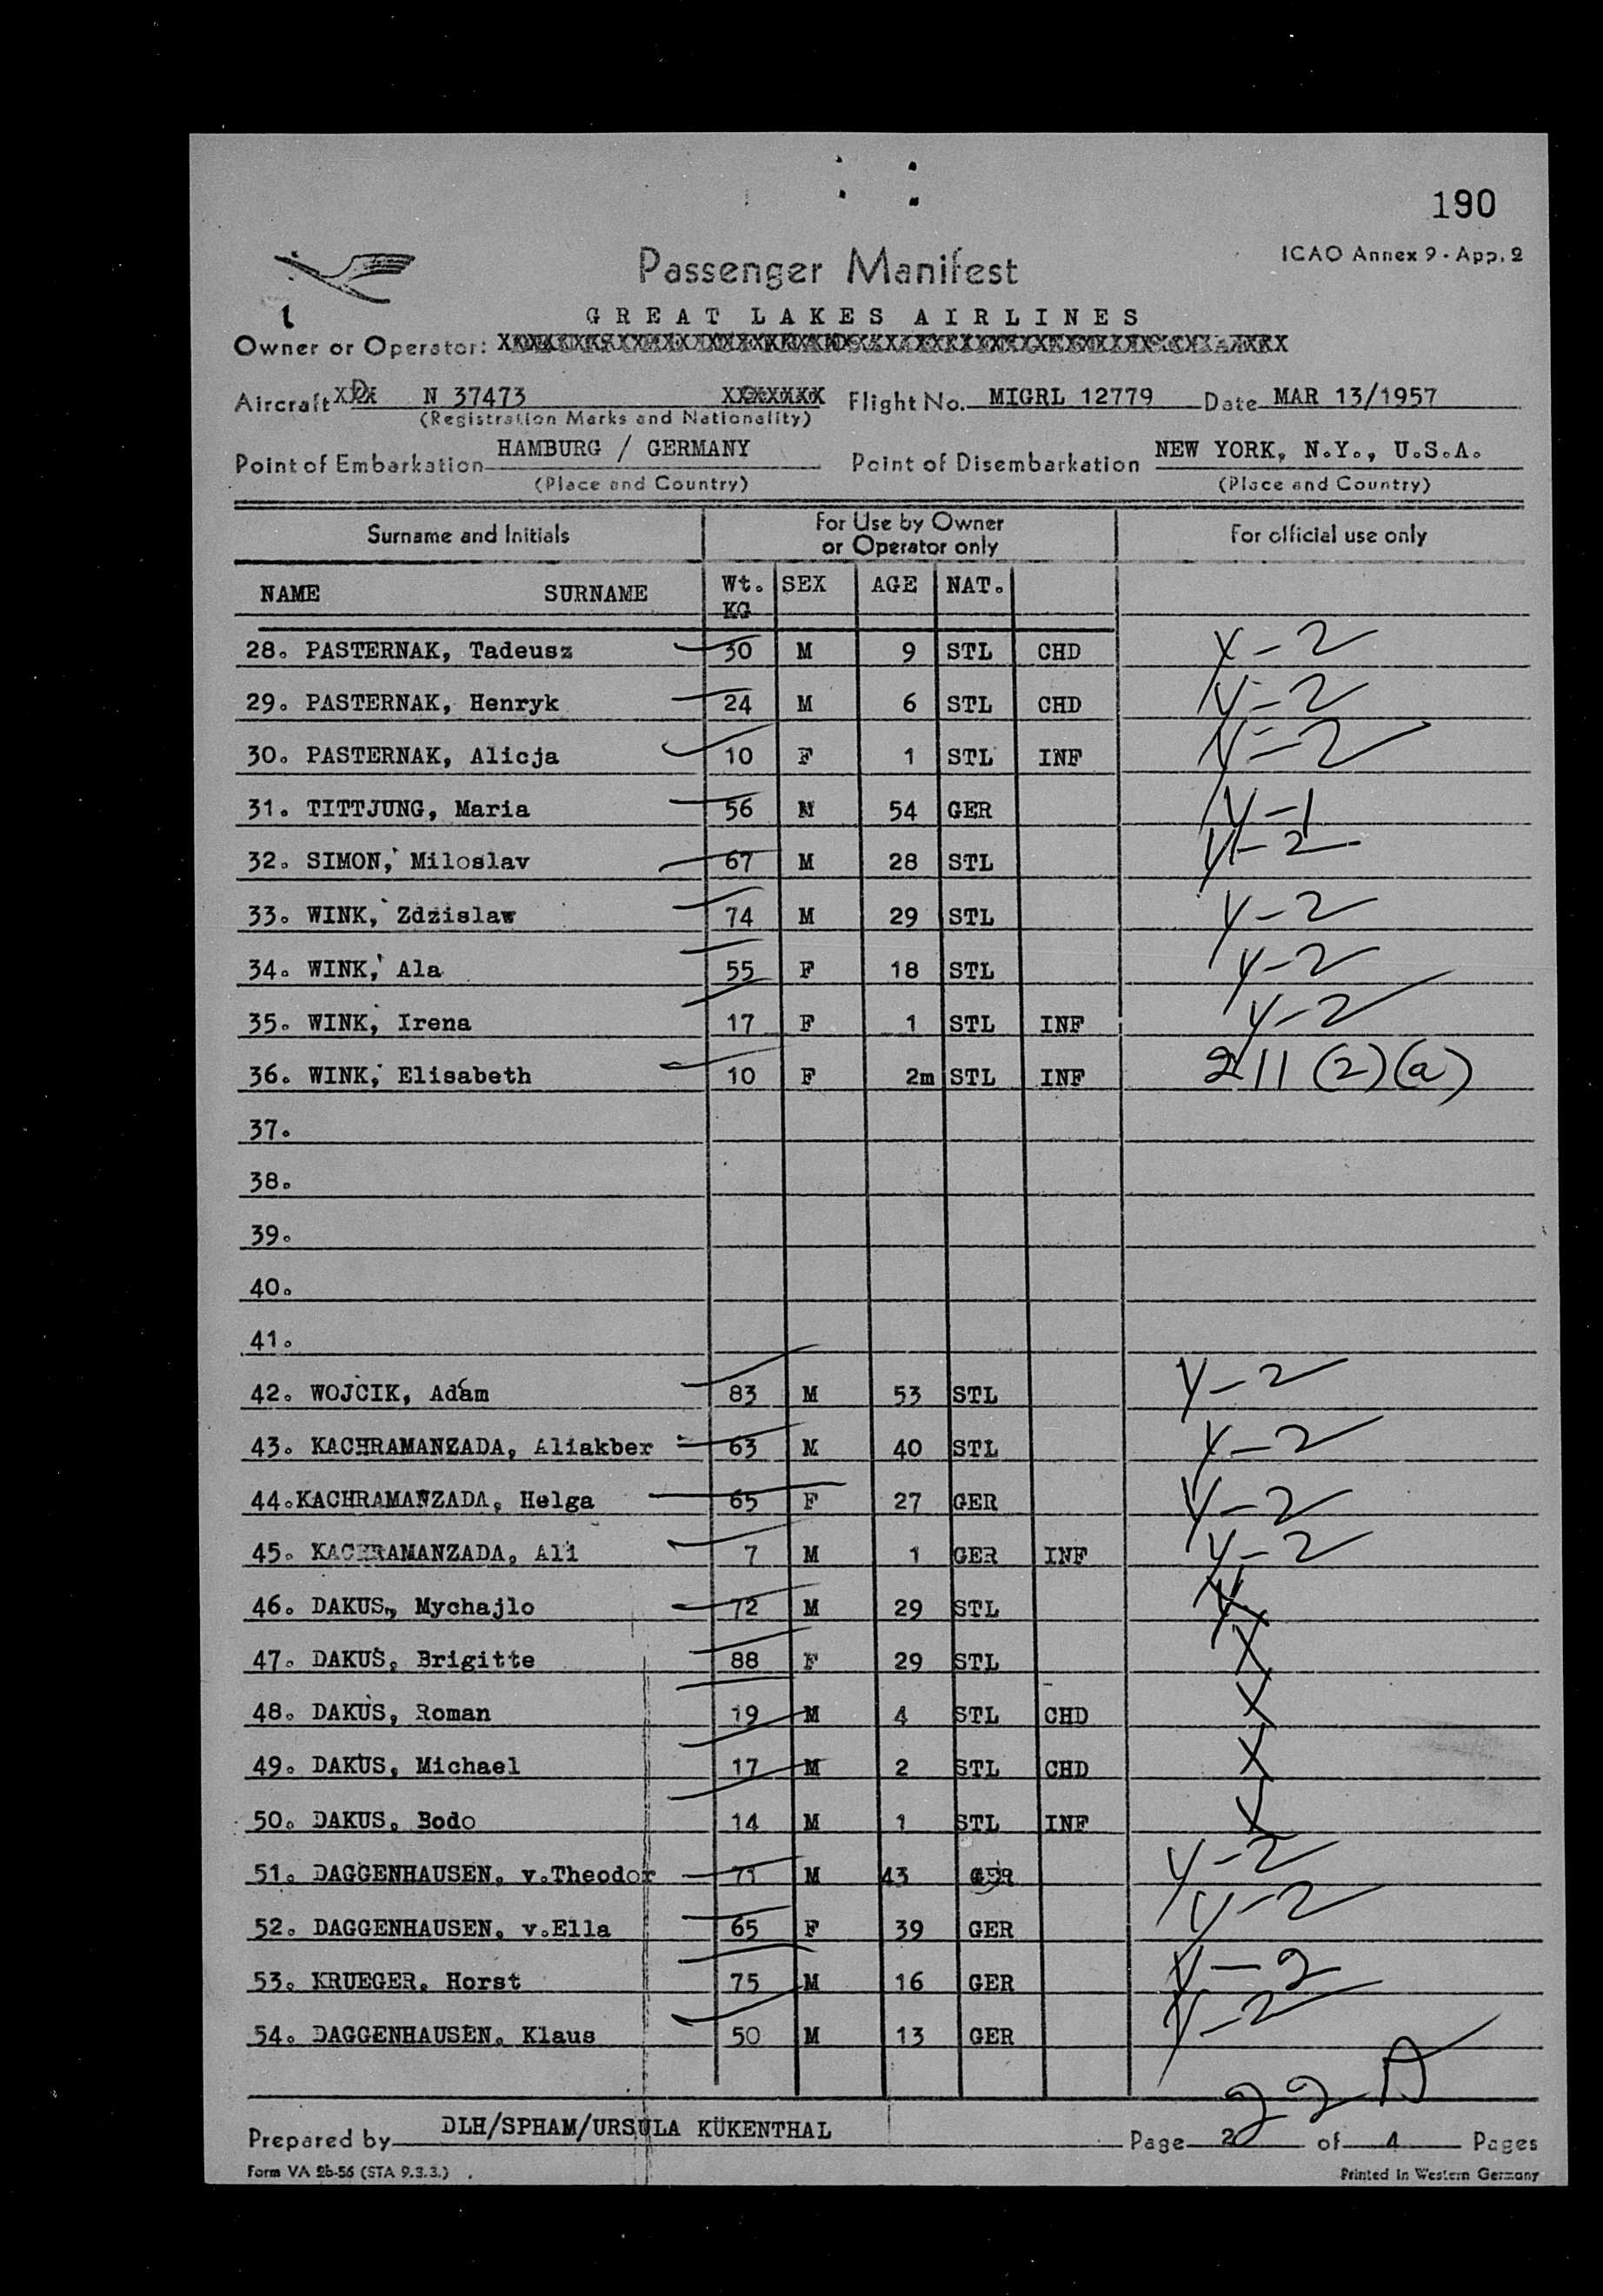 190
ICAO Annex 9 - App. 2
Passenger Manifest
GREAT LAKES AIRLINES
Owner or Operator:
Aircraft N 37473 Flight No. MIGRL 12779 Date MAR 13/1957
(Registration Marks and Nationality)
Point of Embarkation HAMBURG / GERMANY Point of Disembarkation NEW YORK, N.Y., U.S.A.
(Place and Country) (Place and Country)
Surname and Initials For Use by Owner or Operator only For official use only
NAME SURNAME Wt. KG SEX AGE NAT.
28. PASTERNAK, Tadeusz 30 M 9 STL CHD Y-2
29. PASTERNAK, Henryk 24 M 6 STL CHD Y-2
30. PASTERNAK, Alicja 10 F 1 STL INF Y-2
31. TITTJUNG, Maria 56 M 54 GER Y-1
32. SIMON, Miloslav 67 M 28 STL Y-2
33. WINK, Zdzislaw 74 M 29 STL Y-2
34. WINK, Ala 55 F 18 STL Y-2
35. WINK, Irena 17 F 1 STL INF Y-2
36. WINK, Elisabeth 10 F 2m STL INF 211 (2)(a)
37.
38.
39.
40.
41.
42. WOJCIK, Adam 83 M 53 STL Y-2
43. KACHRAMANZADA, Aliakber 63 M 40 STL Y-2
44. KACHRAMANZADA, Helga 65 F 27 GER Y-2
45. KACHRAMANZADA, Ali 7 M 1 GER INF Y-2
46. DAKUS, Mychajlo 72 M 29 STL
47. DAKUS, Brigitte 88 F 29 STL X
48. DAKUS, Roman 19 M 4 STL CHD X
49. DAKUS, Michael 17 M 2 STL CHD X
50. DAKUS, Bodo 14 M 1 STL INF X
51. DAGGENHAUSEN, v.Theodor 71 M 43 GER Y-2
52. DAGGENHAUSEN, v.Ella 65 F 39 GER Y-2
53. KRUEGER, Horst 75 M 16 GER Y-2
54. DAGGENHAUSEN, Klaus 50 M 13 GER Y-2
22 A
Prepared by DLH/SPHAM/URSULA KÜKENTHAL Page 2 of 4 Pages
Form VA 2b-56 (STA 9.3.3.) Printed in Western Germany